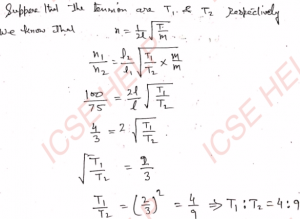 Suppose that the tension are T₁ & T₂ respectively
we know that n = 1/2l √(T/m)
n₁/n₂ = l₂/l₁ √(T₁/T₂ × m/m)
100/75 = 2l/l √(T₁/T₂)
4/3 = 2 √(T₁/T₂)
√(T₁/T₂) = 2/3
T₁/T₂ = (2/3)² = 4/9 ⇒ T₁ : T₂ = 4 : 9
ICSE HELP
ICSE HEL